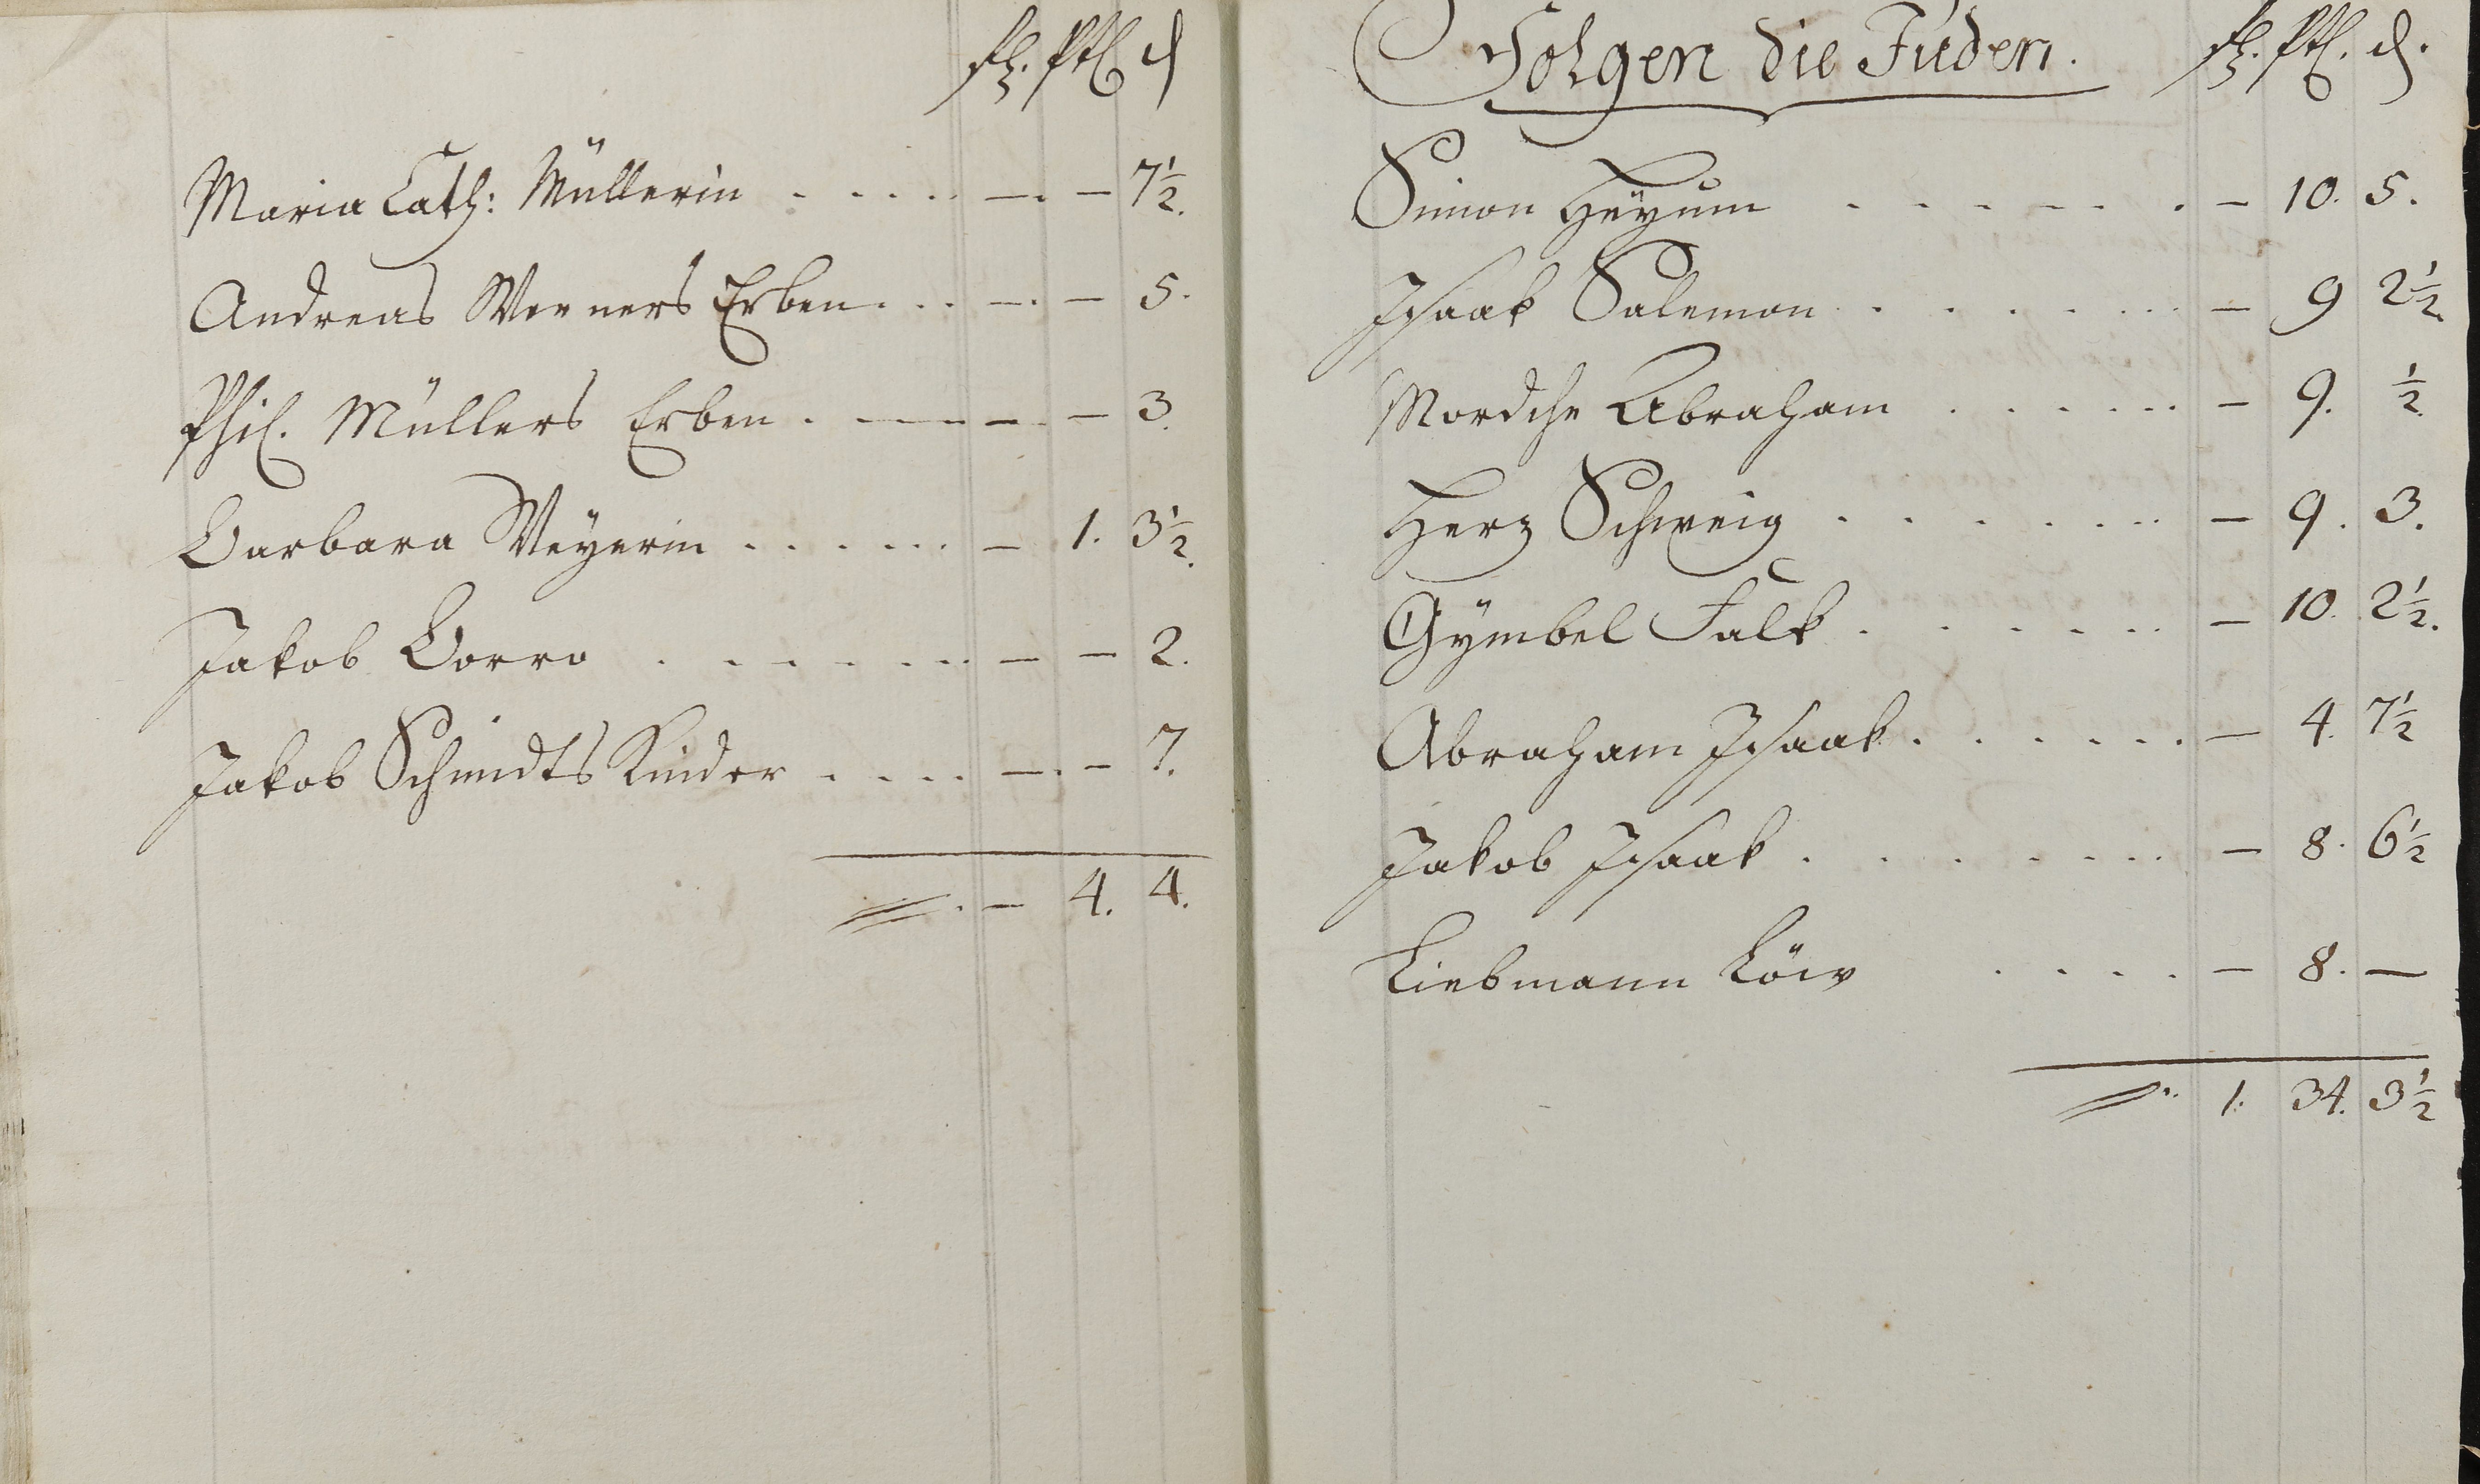 fl. Btz. ₰
Maria Cath: Müllerin . . . . . — . — 7½.
Andreas Werners Erben . . . — . — 5.
Phil. Müllers Erben . — — — — 3.
Barbara Meÿerin . . . . . . — 1. 3½.
Jakob Dorra . . . . . . . — — 2.
Jakob Schmidts Kinder . . . . — . — 7.
. — 4. 4.
Folgen die Juden. fl. Btz. ₰.
Simon Heÿum . . . . . . . — 10. 5.
Isaak Salemon . . . . . . . — 9 2½.
Mordche Abraham . . . . . . — 9. ½.
Herz Schweig . . . . . . . — 9. 3.
Gÿmbel Falk . . . . . . . — 10. 2½.
Abraham Isaak . . . . . . — 4. 7½
Jakob Isaak . . . . . . . — 8. 6½
Liebmann Löw . . . . — 8. —
1. 34. 3½